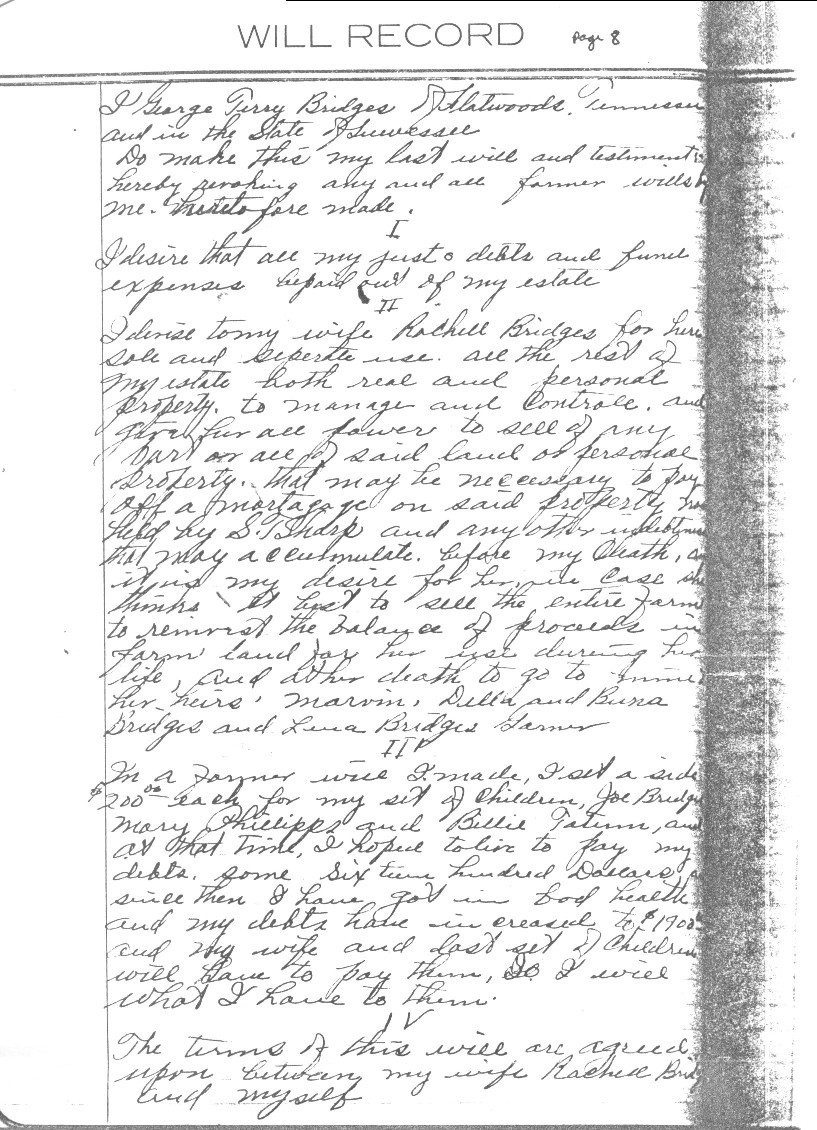 WILL RECORD Page 8
I George Terry Bridges of Flatwoods, Tennessee
and in the State of Tennessee
Do make this my last will and testiment
hereby revoking any and all former wills
me. heretofore made.
I
I desire that all my just debts and funel
expenses be paid out of my estate
II
I devise to my wife Rachell Bridges for here
sole and seperate use. all the rest of
my estate both real and personal
property. to manage and controle. and
full power to sell of any
part or all of said land or personal
property. that may be necessary to pay
off a mortagage on said property
held by S. T. Tharp and any other indebtnes
that may accumulate. before my death,
it is my desire for her in case she
thinks it best to sell the entire farm
to reinvest the balance of proceeds in
farm land for her use during her
life, and at her death to go to mine
her heirs' Marvin, Della and Buna
Bridges and Lura Bridges Garner
III
In a former will I made, I set a side
$200.00 each for my set of Children, Joe Bridges
Mary Phillipps and Billie Tatum, and
at that time, I hoped to live to pay my
debts. some Six teen hundred Dollars,
since then I have got in bad health
and my debts have in creased to $1900
and my wife and last set of Children
will have to pay them, So I will
what I have to them.
IV
The terms of this will are agreed
upon between my wife Rachell Brid
and myself